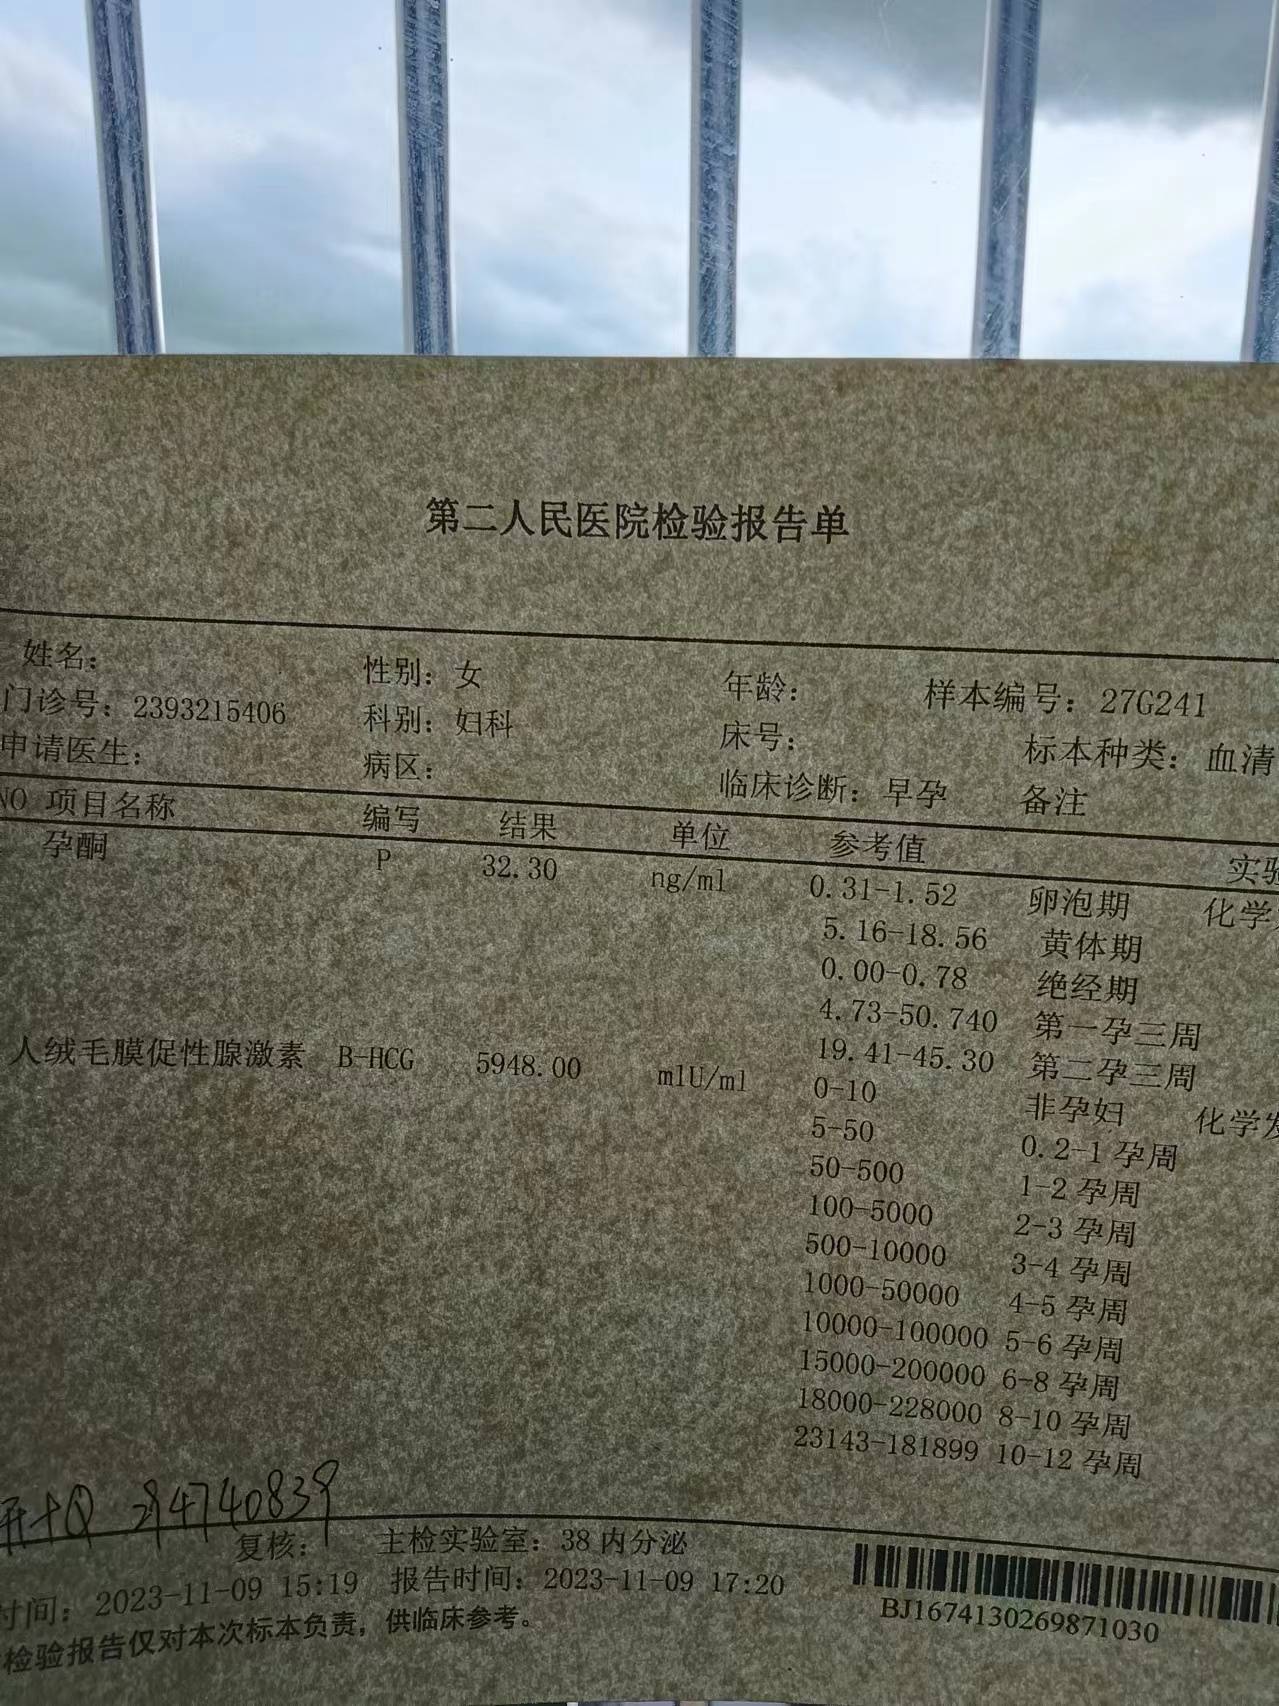 第二人民医院检验报告单
姓名： 性别：女 年龄： 样本编号：27G241
门诊号：2393215406 科别：妇科 床号： 标本种类：血清
申请医生： 病区： 临床诊断：早孕 备注
NO 项目名称 编写 结果 单位 参考值 实验
孕酮 P 32.30 ng/ml 0.31-1.52 卵泡期 化学
5.16-18.56 黄体期
0.00-0.78 绝经期
4.73-50.740 第一孕三周
19.41-45.30 第二孕三周
人绒毛膜促性腺激素 B-HCG 5948.00 mlU/ml 0-10 非孕妇 化学发
5-50 0.2-1 孕周
50-500 1-2 孕周
100-5000 2-3 孕周
500-10000 3-4 孕周
1000-50000 4-5 孕周
10000-100000 5-6 孕周
15000-200000 6-8 孕周
18000-228000 8-10 孕周
23143-181899 10-12 孕周
开+Q 294740839
复核： 主检实验室：38 内分泌
时间：2023-11-09 15:19 报告时间：2023-11-09 17:20
检验报告仅对本次标本负责，供临床参考。
BJ1674130269871030